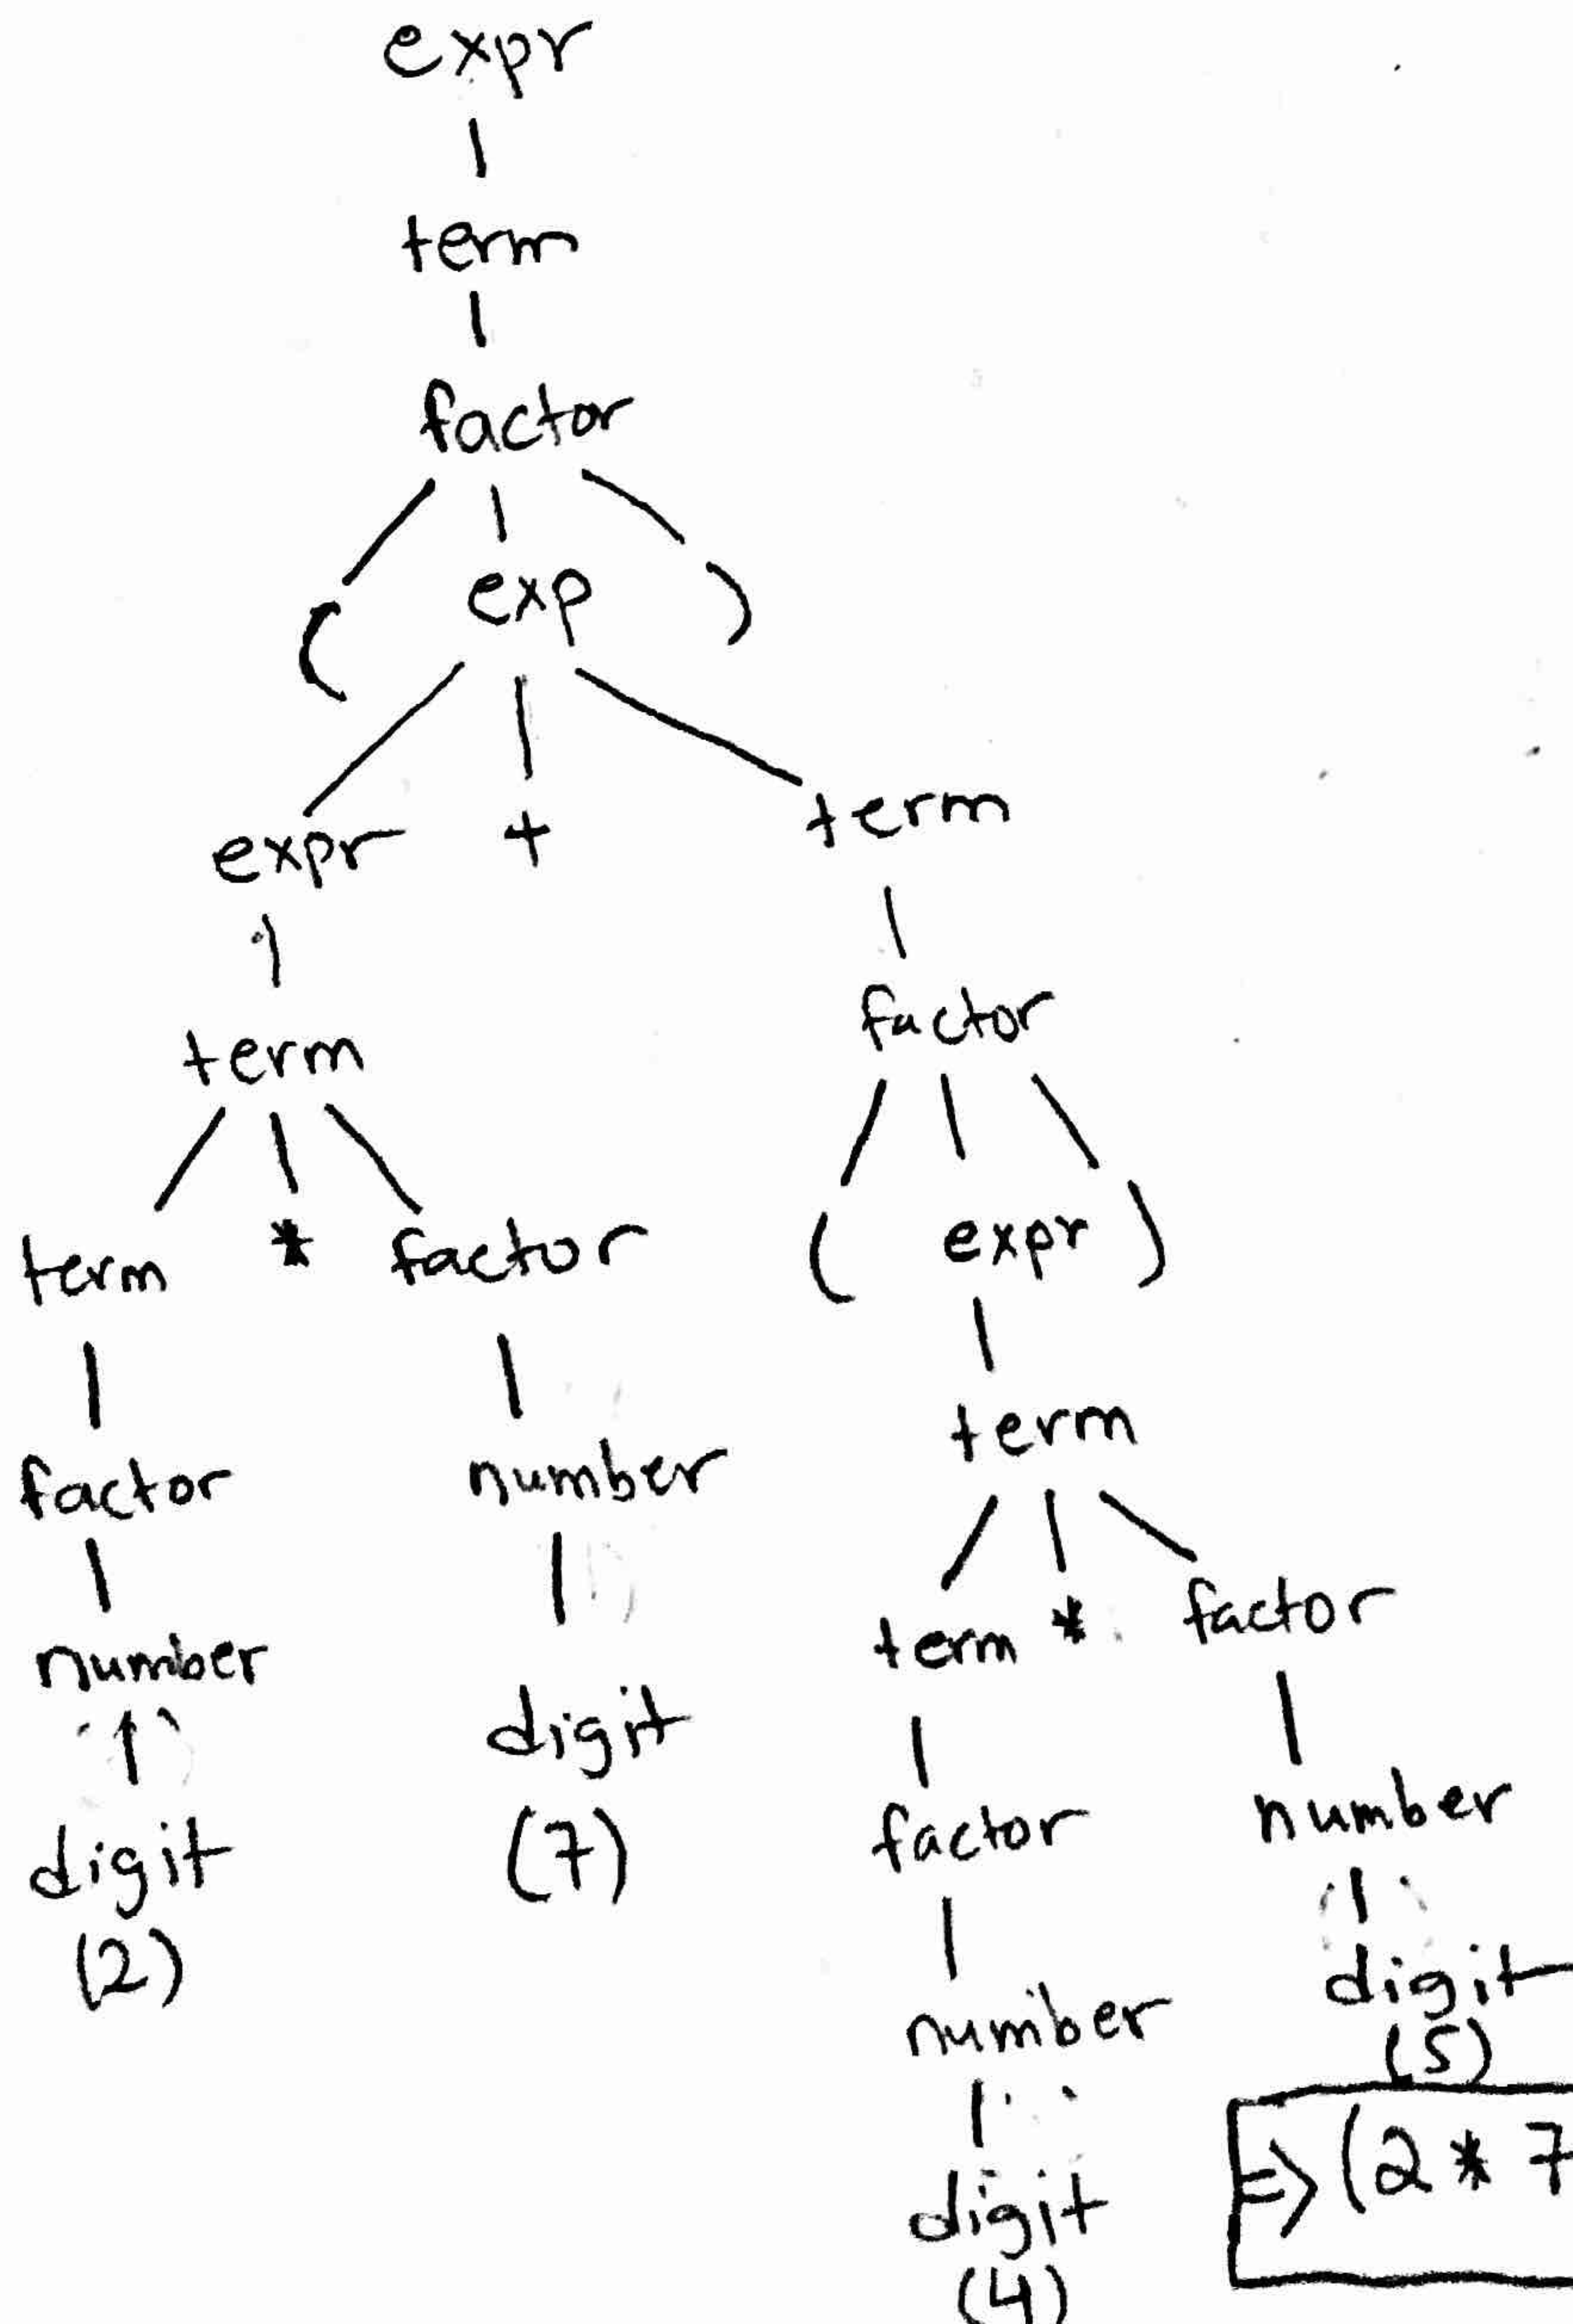 expr
term
factor
( exp )
expr + term
term factor
term * factor ( expr )
factor number term
number digit term * factor
digit (7) factor number
(2) number digit
(5)
=> (2 * 7
digit
(4)